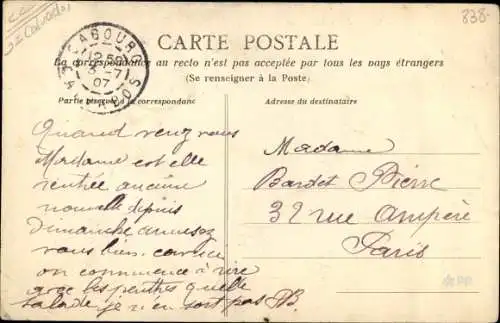 838-
Calvados
CABOURG
12 50
3-7
07
CALVADOS
CARTE POSTALE
La correspondance au recto n'est pas acceptée par tous les pays étrangers
(Se renseigner à la Poste)
Partie réservée à la correspondance
Adresse du destinataire
Quand venez vous
Madame est elle
rentrée aucune
nouvelle depuis
dimanche amusez
vous bien
on commence à rire
avec les quelle
salade je n'en sort pas
Madame
Bardet Pierre
32 rue Ampère
Paris